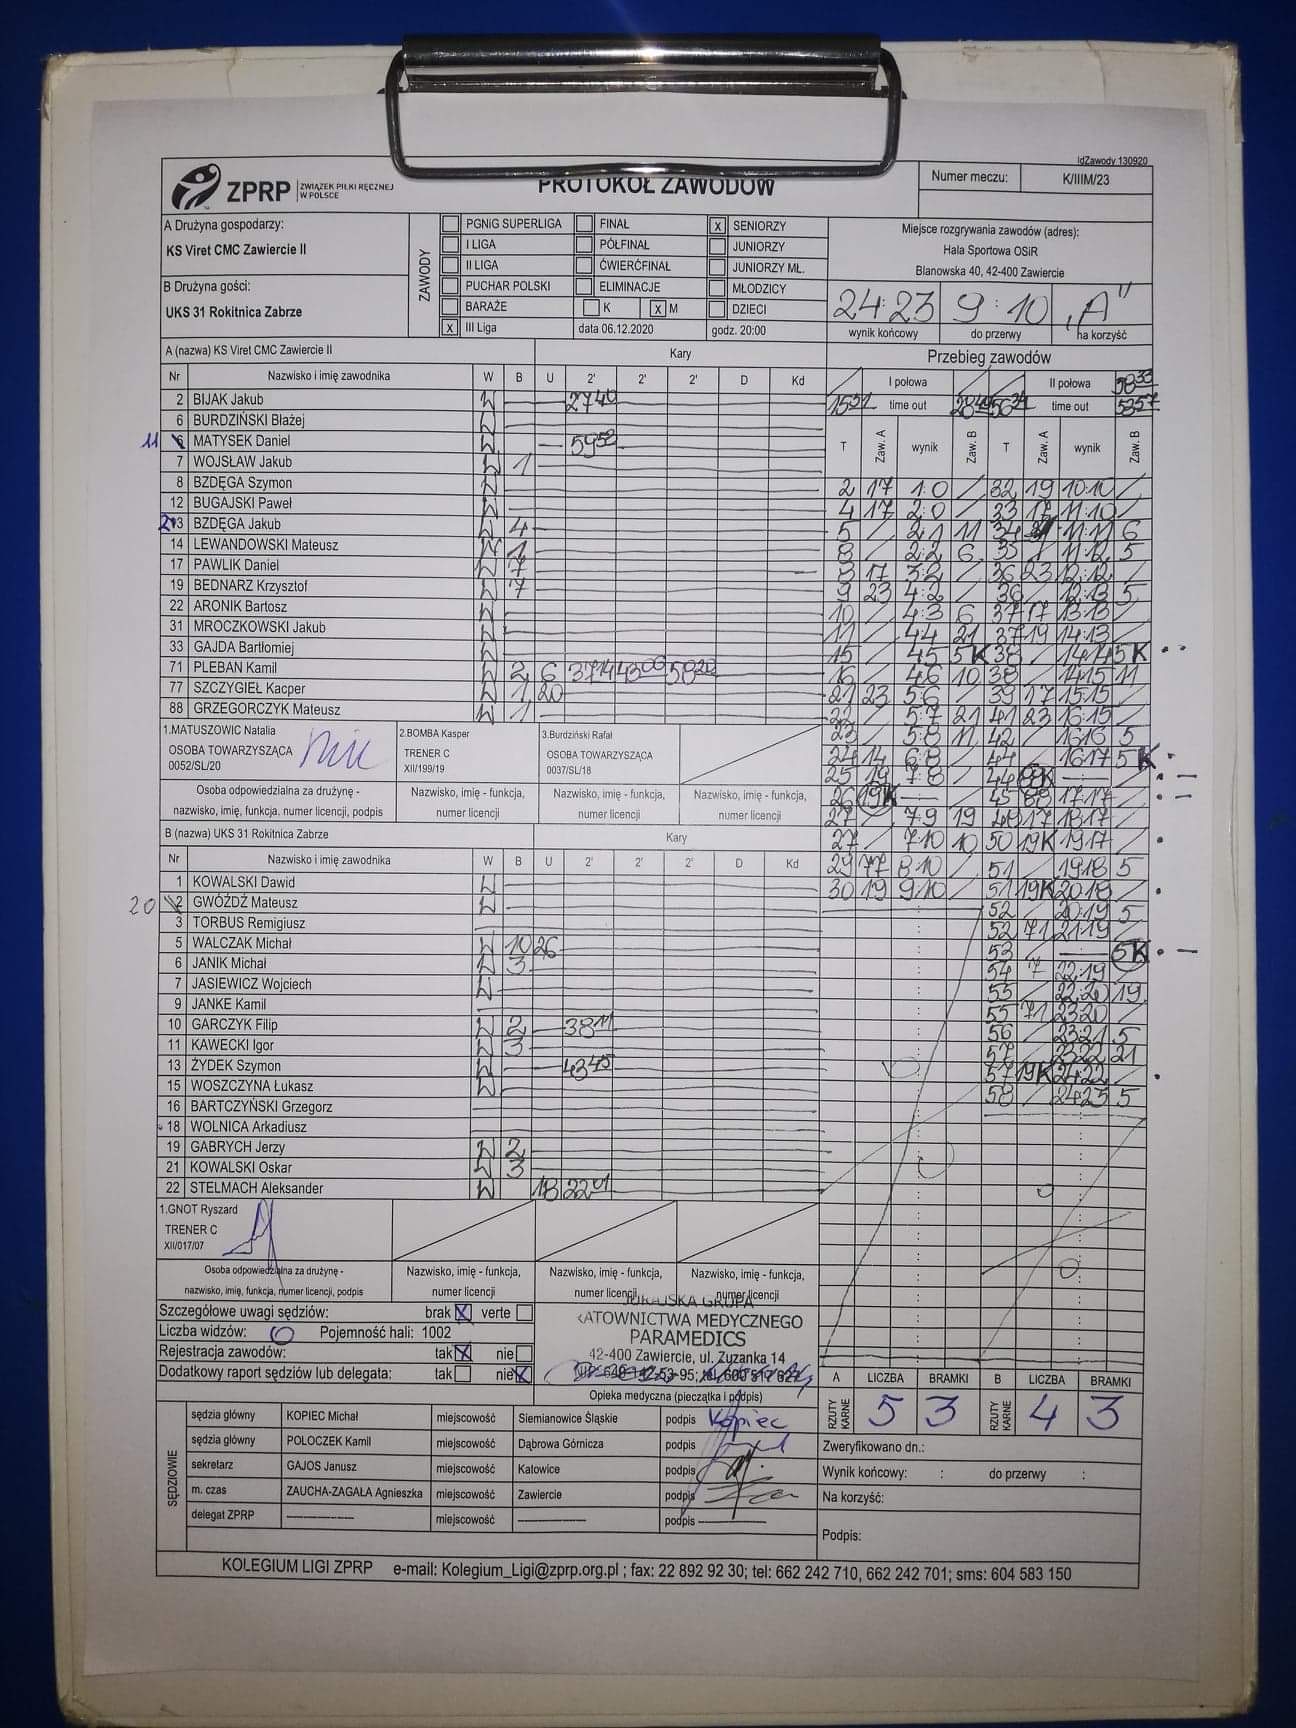 IdZawody 130920
ZPRP ZWIĄZEK PIŁKI RĘCZNEJ W POLSCE
PROTOKÓŁ ZAWODÓW
Numer meczu: K/IIIM/23
A Drużyna gospodarzy:
KS Viret CMC Zawiercie II
B Drużyna gości:
UKS 31 Rokitnica Zabrze
ZAWODY
PGNiG SUPERLIGA FINAŁ X SENIORZY
I LIGA PÓŁFINAŁ JUNIORZY
II LIGA ĆWIERĆFINAŁ JUNIORZY MŁ.
PUCHAR POLSKI ELIMINACJE MŁODZICY
BARAŻE K X M DZIECI
X III Liga data 06.12.2020 godz. 20:00
Miejsce rozgrywania zawodów (adres):
Hala Sportowa OSiR
Blanowska 40, 42-400 Zawiercie
24:23 9:10 „A"
wynik końcowy do przerwy na korzyść
A (nazwa) KS Viret CMC Zawiercie II Kary
Nr Nazwisko i imię zawodnika W B U 2' 2' 2' D Kd
2 BIJAK Jakub W 27 40
6 BURDZIŃSKI Błażej W
11 MATYSEK Daniel W 59 52
7 WOJSŁAW Jakub W 1
8 BZDĘGA Szymon W
12 BUGAJSKI Paweł W
13 BZDĘGA Jakub W 4
14 LEWANDOWSKI Mateusz W 1
17 PAWLIK Daniel W 7
19 BEDNARZ Krzysztof W 7
22 ARONIK Bartosz W
31 MROCZKOWSKI Jakub W
33 GAJDA Bartłomiej W
71 PLEBAN Kamil W 2 6 37 14 43 06 58 20
77 SZCZYGIEŁ Kacper W 1 20
88 GRZEGORCZYK Mateusz W 1
1.MATUSZOWIC Natalia
OSOBA TOWARZYSZĄCA
0052/SL/20
2.BOMBA Kasper
TRENER C
XII/199/19
3.Burdziński Rafał
OSOBA TOWARZYSZĄCA
0037/SL/18
Osoba odpowiedzialna za drużynę - nazwisko, imię, funkcja, numer licencji, podpis
Nazwisko, imię - funkcja, numer licencji
Nazwisko, imię - funkcja, numer licencji
Nazwisko, imię - funkcja, numer licencji
B (nazwa) UKS 31 Rokitnica Zabrze Kary
Nr Nazwisko i imię zawodnika W B U 2' 2' 2' D Kd
1 KOWALSKI Dawid W
20 GWÓŹDŹ Mateusz W
3 TORBUS Remigiusz
5 WALCZAK Michał W 10 26
6 JANIK Michał W 3
7 JASIEWICZ Wojciech W
9 JANKE Kamil
10 GARCZYK Filip W 2 38 11
11 KAWECKI Igor W 3
13 ŻYDEK Szymon W 43 45
15 WOSZCZYNA Łukasz W
16 BARTCZYŃSKI Grzegorz
18 WOLNICA Arkadiusz
19 GABRYCH Jerzy W 2
21 KOWALSKI Oskar W 3
22 STELMACH Aleksander W 18 22 01
1.GNOT Ryszard
TRENER C
XII/017/07
Osoba odpowiedzialna za drużynę - nazwisko, imię, funkcja, numer licencji, podpis
Nazwisko, imię - funkcja, numer licencji
Nazwisko, imię - funkcja, numer licencji
Nazwisko, imię - funkcja, numer licencji
Przebieg zawodów
I połowa II połowa 58 33
time out time out 53 57
T Zaw. A wynik Zaw. B T Zaw. A wynik Zaw. B
2 17 1:0 / 32 19 10:10 /
4 17 2:0 / 33 17 11:10 /
5 / 2:1 11 34 11:11 6
8 / 2:2 6 35 / 11:12 5
8 17 3:2 / 36 23 12:12 /
9 23 4:2 / 36 / 12:13 5
10 / 4:3 6 37 17 13:13 /
11 / 4:4 21 37 19 14:13 /
15 / 4:5 5K 38 / 14:14 5K
16 / 4:6 10 38 / 14:15 11
21 23 5:6 / 39 17 15:15 /
22 / 5:7 21 41 23 16:15 /
23 / 5:8 11 42 / 16:16 5
24 14 6:8 / 44 / 16:17 5K
25 19 7:8 / 44 88K
26 19K 45 88 17:17 /
27 / 7:9 19 49 17 18:17 /
27 / 7:10 10 50 19K 19:17 /
29 77 8:10 / 51 / 19:18 5
30 19 9:10 / 51 19K 20:18 /
52 / 20:19 5
52 71 21:19 /
53 5K
54 7 22:19 /
55 / 22:20 19
55 71 23:20 /
56 / 23:21 5
57 / 23:22 21
57 19K 24:22 /
58 / 24:23 5
Szczegółowe uwagi sędziów: brak X verte
Liczba widzów: 0 Pojemność hali: 1002
Rejestracja zawodów: tak X nie
Dodatkowy raport sędziów lub delegata: tak nie X
JURAJSKA GRUPA
RATOWNICTWA MEDYCZNEGO
PARAMEDICS
42-400 Zawiercie, ul. Zuzanka 14
Opieka medyczna (pieczątka i podpis)
A LICZBA BRAMKI B LICZBA BRAMKI
RZUTY KARNE 5 3 RZUTY KARNE 4 3
SĘDZIOWIE
sędzia główny KOPIEC Michał miejscowość Siemianowice Śląskie podpis Kopiec
sędzia główny POLOCZEK Kamil miejscowość Dąbrowa Górnicza podpis
sekretarz GAJOS Janusz miejscowość Katowice podpis
m. czas ZAUCHA-ZAGAŁA Agnieszka miejscowość Zawiercie podpis
delegat ZPRP miejscowość podpis
Zweryfikowano dn.:
Wynik końcowy: : do przerwy :
Na korzyść:
Podpis:
KOLEGIUM LIGI ZPRP e-mail: Kolegium_Ligi@zprp.org.pl ; fax: 22 892 92 30; tel: 662 242 710, 662 242 701; sms: 604 583 150